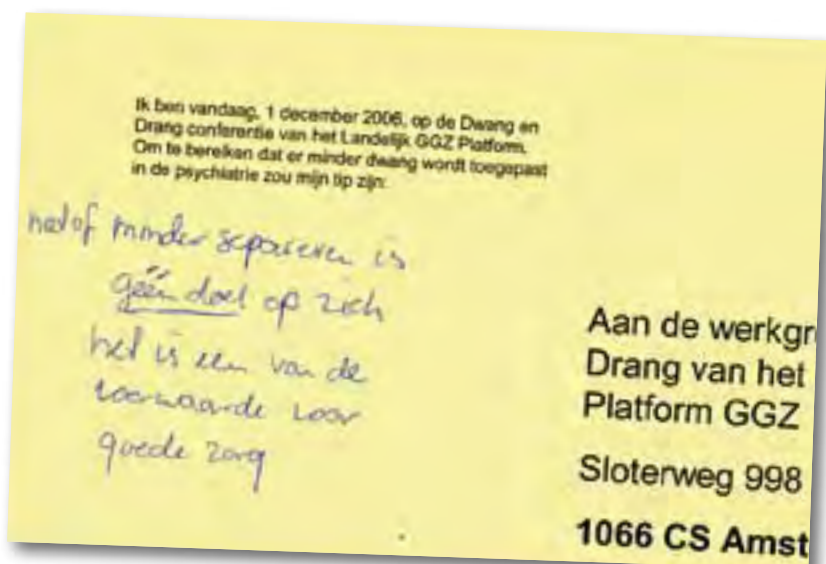 Ik ben vandaag, 1 december 2006, op de Dwang en
Drang conferentie van het Landelijk GGZ Platform.
Om te bereiken dat er minder dwang wordt toegepast
in de psychiatrie zou mijn tip zijn:
minder separeren is
géén doel op zich
het is een van de
voorwaarde voor
goede zorg
Aan de werkgr
Drang van het
Platform GGZ
Sloterweg 998
1066 CS Amst